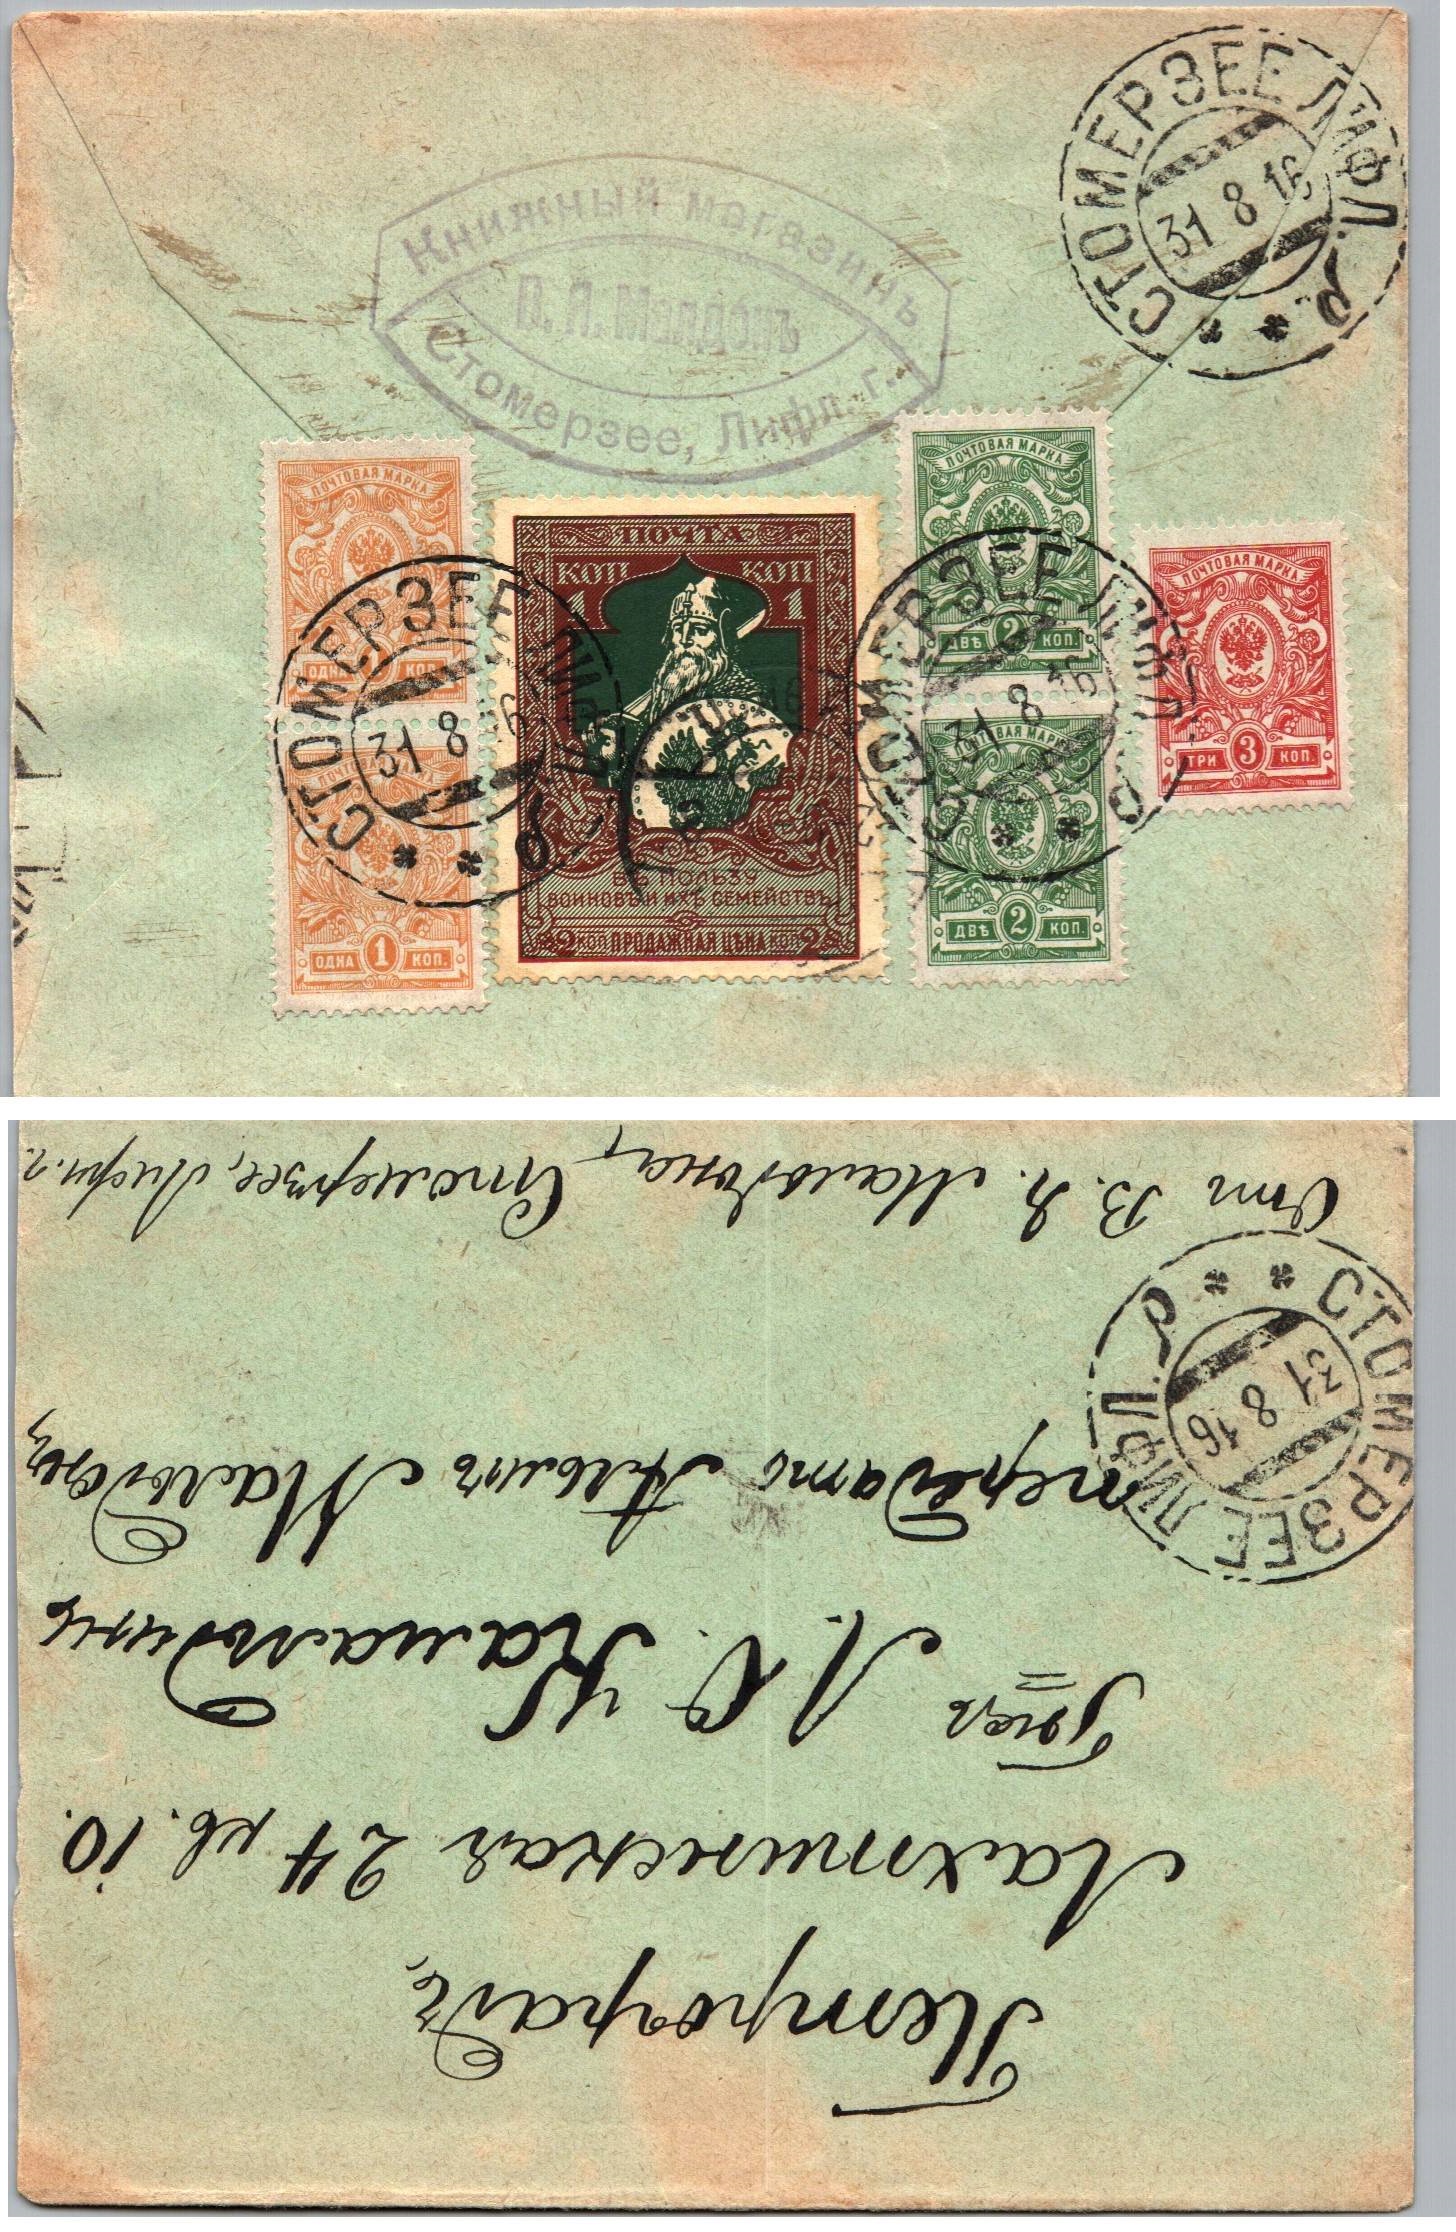 СТОМЕРЗЕЕ ЛИФЛ.
31 8 16
Книжный магазинъ
Стомерзее, Лифл. г.
ПОЧТОВАЯ МАРКА
ОДНА 1 КОП.
ПОЧТОВАЯ МАРКА
ОДНА 1 КОП.
ПОЧТА
КОП КОП
1 1
ВЪ ПОЛЬЗУ
ВОИНОВЪ И ИХЪ СЕМЕЙСТВЪ
2 КОП ПРОДАЖНАЯ ЦѢНА КОП 2
ПОЧТОВАЯ МАРКА
ДВѢ 2 КОП.
ПОЧТОВАЯ МАРКА
ДВѢ 2 КОП.
ПОЧТОВАЯ МАРКА
ТРИ 3 КОП.
СТОМЕРЗЕЕ ЛИФЛ.
31 8 16
СТОМЕРЗЕЕ ЛИФЛ.
31 8 16
Петроградъ,
Лахтинская 24 кв. 10.
Л. К. Камальдинъ
передать Мальдонъ
От В. Я. Мальдона, Стомерзее, Лифл. г.
СТОМЕРЗЕЕ ЛИФЛ.
31 8 16